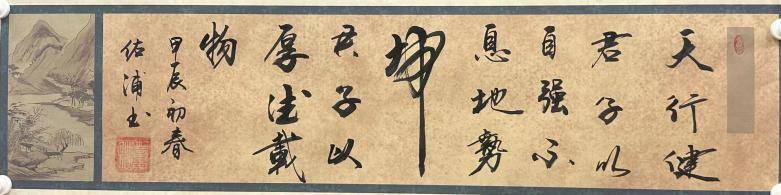 天行健
君子以
自强不
息地勢
坤
君子以
厚德載
物
甲辰初春
佑浦书